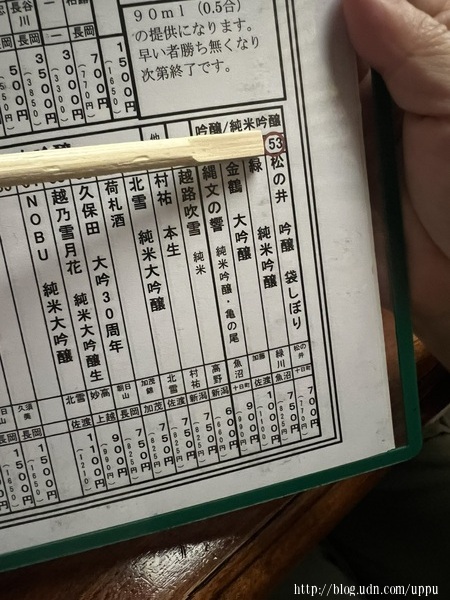 90ml (0.5合)
の提供になります。
早い者勝ち無くなり
次第終了です。
1500円
長岡 700円 (770円)
長岡 3000円 (3300円)
長谷川 長岡 3500円 (3850円)
吟醸/純米吟醸
53
松の井 吟醸 袋しぼり 松の井 十日町 700円 (770円)
緑 純米吟醸 緑川 魚沼 750円 (825円)
金鶴 大吟醸 加藤 佐渡 1000円
縄文の響 純米吟醸・亀の尾 魚沼 十日町 600円 (660円)
越路吹雪 純米 高野 新潟 750円 (825円)
村祐 本生 村祐 新潟 750円 (825円)
北雪 純米大吟醸 北雪 佐渡 750円 (825円)
荷札酒 加茂錦 加茂 750円 (825円)
久保田 大吟30周年 朝日山 長岡 750円 (825円)
越乃雪月花 純米大吟醸生 妙高 上越 900円 (990円)
NOBU 純米大吟醸 北雪 佐渡 1100円 (1210円)
久須美 長岡 1500円
長岡 1500円
http://blog.udn.com/uppu